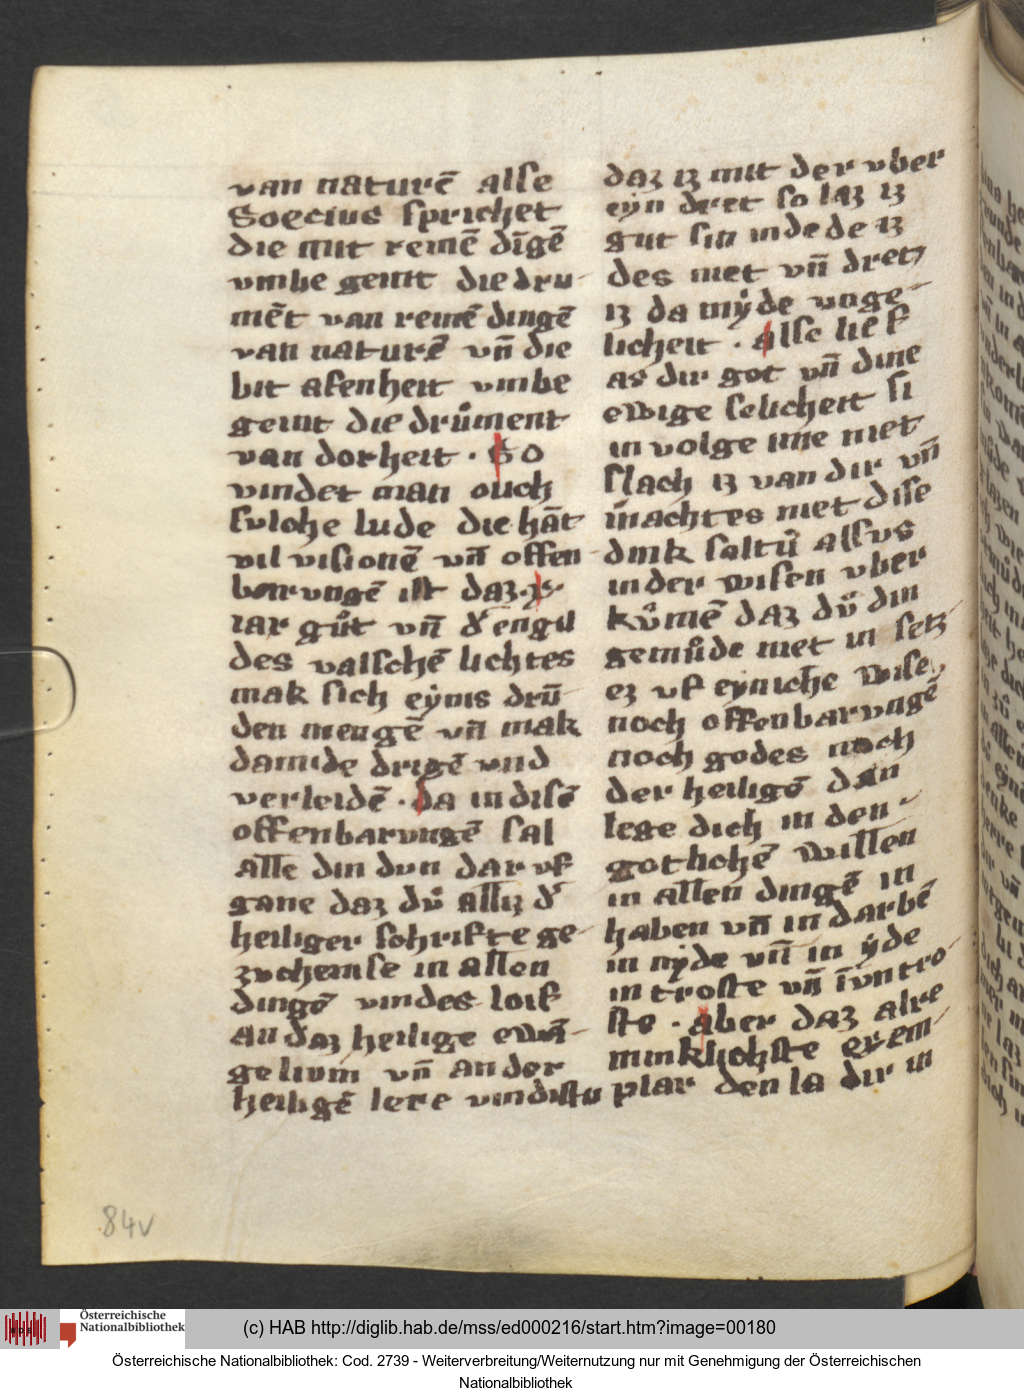 van naturē alse
Boecius sprichet
die mit reinē dīgē
vmbe geint die dru-
mēt van reinē dingē
van naturē vn̄ die
bit afenheit vmbe
geint die drůment
van dorheit · So
vindet man ouch
sulche lude die hāt
vil visionē vn̄ offen-
barungē ist daz · ꝫ
iar gůt vn̄ d' engil
des valschē lichtes
mak sich eẏnis drū-
den mengē vn̄ mak
da mide drigē vnd
verleidē · da in disē
offenbarungē sal
alle din dun dar vf
gane daz dů alliz d'
heiliger schrifte ge-
zvchemse in allen
dingē vindes loif
An daz heilige ewā-
gelium vn̄ an der
heiligē lere vindistu
daz iz mit der vber
eẏn dret so laz iz
gut sin inde de iz
des niet vn̄ dret
iz da mẏde vnge-
licheit · alse lief
as dir got vn̄ dine
ewige selicheit si
in volge ime niet
slach iz van dir vn̄
m̄achtes niet dise
dink saltů alsus
in der wisen vber
kůmē daz dů din
gemůde niet in setz-
ez vf eẏnichē wise
noch offenbarungē
noch godes noch
der heiligē dan
lege dich in den
gothohē willen
in allen dingē in
haben vn̄ in darbē
in nẏde vn̄ in ẏde
in troste vn̄ īvntro-
ste · aber daz alre
minklichste exem-
plar den la dir in
84v
Österreichische
Nationalbibliothek
(c) HAB http://diglib.hab.de/mss/ed000216/start.htm?image=00180
Österreichische Nationalbibliothek: Cod. 2739 - Weiterverbreitung/Weiternutzung nur mit Genehmigung der Österreichischen
Nationalbibliothek